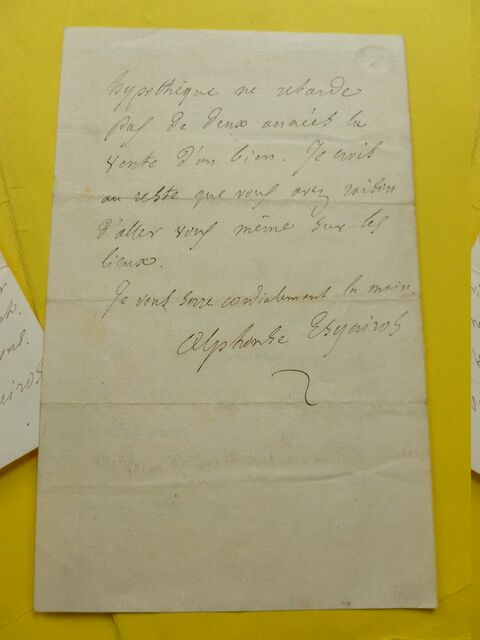 hypothèque ne retarde
pas de deux années la
vente d'un bien. Je crois
au reste que vous avez raison
d'aller vous même sur les
lieux.
Je vous serre cordialement la main.
Alphonse Esquiros